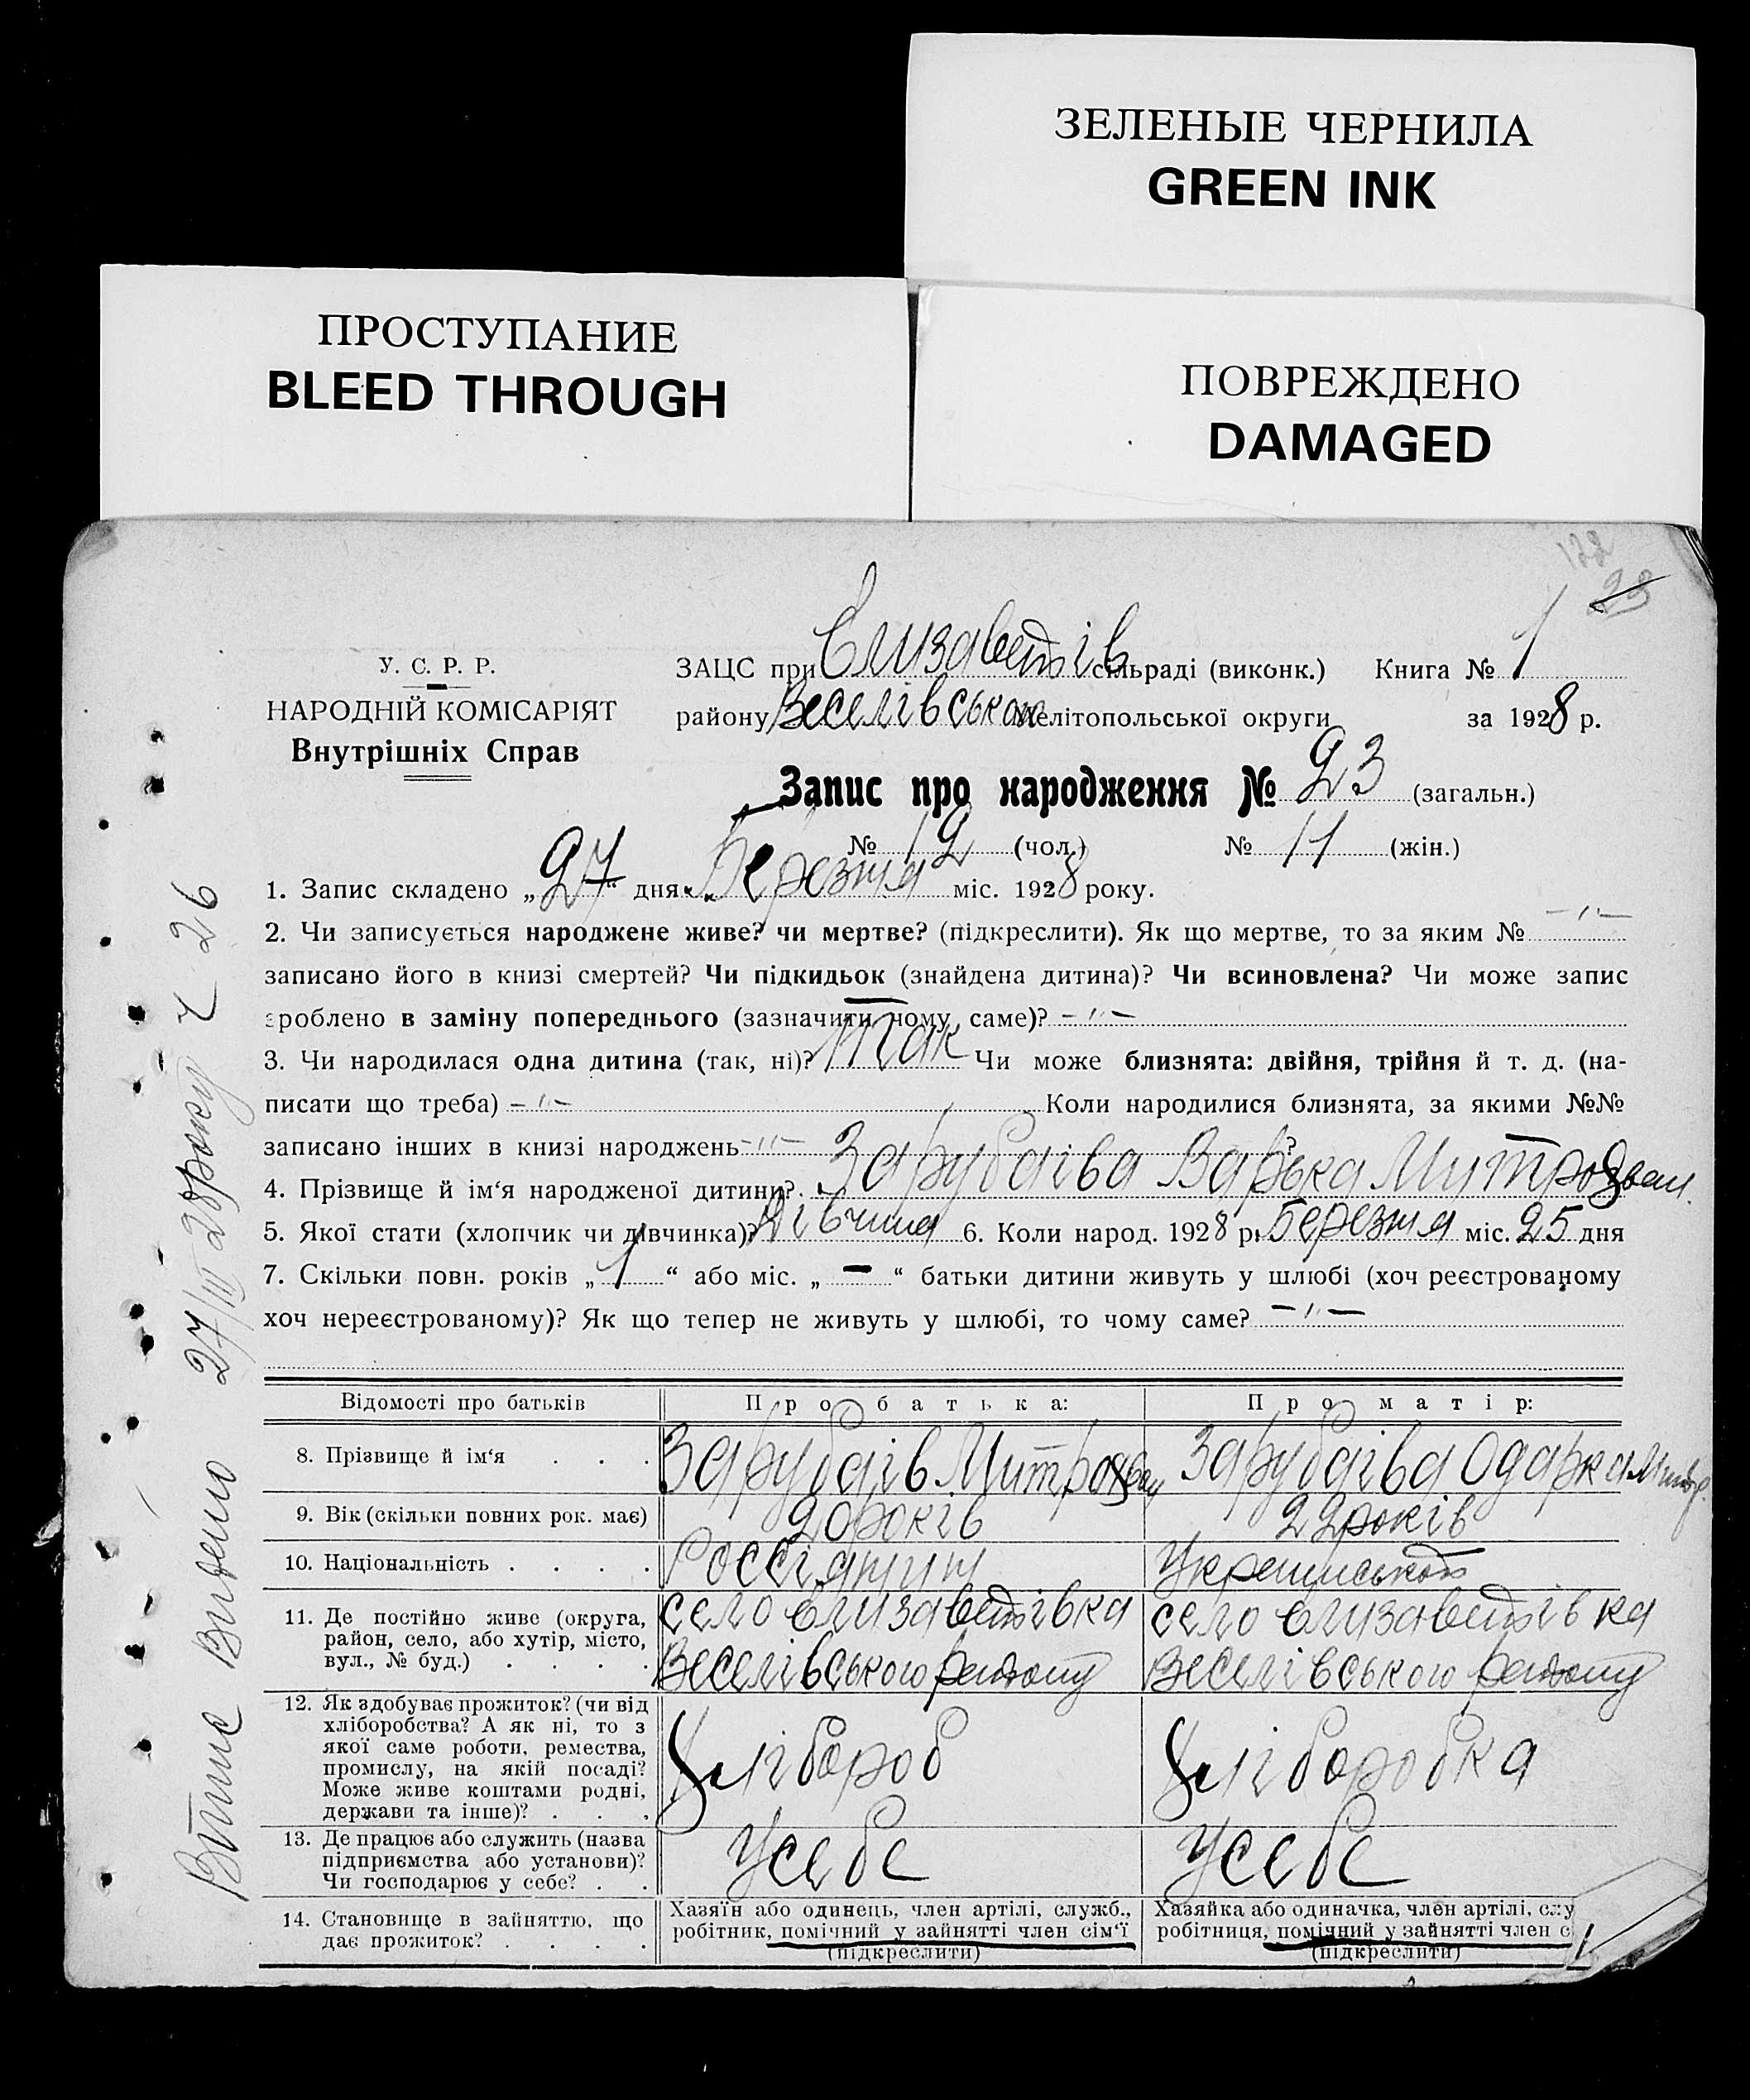 ЗЕЛЕНЫЕ ЧЕРНИЛА
GREEN INK
ПРОСТУПАНИЕ
BLEED THROUGH
ПОВРЕЖДЕНО
DAMAGED
122
23
У. С. Р. Р.
НАРОДНІЙ КОМІСАРІЯТ
Внутрішніх Справ
ЗАЦС при Єлизаветів сільраді (виконк.) Книга № 1
району Веселівськом Мелітопольської округи за 1928 р.
Запис про народження № 23 (загальн.)
№ 12 (чол.) № 11 (жін.)
1. Запис складено „27“ дня „Березня міс. 1928 року.
2. Чи записується народжене живе? чи мертве? (підкреслити). Як що мертве, то за яким № -"-
записано його в книзі смертей? Чи підкидьок (знайдена дитина)? Чи всиновлена? Чи може запис
зроблено в заміну попереднього (зазначити чому саме)? -"-
3. Чи народилася одна дитина (так, ні)? Так Чи може близнята: двійня, трійня й т. д. (на-
писати що треба) -"- Коли народилися близнята, за якими №№
записано інших в книзі народжень -"- ?
4. Прізвище й ім‘я народженої дитини? Зарубаіва Варька Митрофван.
5. Якої стати (хлопчик чи дівчинка)? Дівчина 6. Коли народ. 1928 р. Березня міс. 25 дня
7. Скільки повн. років „1“ або міс. „–“ батьки дитини живуть у шлюбі (хоч реєстрованому
хоч нереєстрованому)? Як що тепер не живуть у шлюбі, то чому саме? -"-
Відомості про батьків Про батька: Про матір:
8. Прізвище й ім‘я . . . Зарубаів Митрофван Зарубаіва Одарка Митр.
9. Вік (скільки повних рок. має) 20 років 22 років
10. Національність . . . . Россіянин Украинськой
11. Де постійно живе (округа, район, село, або хутір, місто, вул., № буд.) . . . . село Єлизаветівка Веселівського району село Єлизаветівка Веселівського району
12. Як здобуває прожиток? (чи від хліборобства? А як ні, то з якої саме роботи, ремества, промислу, на якій посаді? Може живе коштами родні, держави та інше)? . . . Хлібороб Хліборобка
13. Де працює або служить (назва підприємства або установи)? Чи господарює у себе? . . Усебе Усебе
14. Становище в зайняттю, що дає прожиток? . . . . Хазяїн або одинець, член артілі, служб., робітник, помічний у зайнятті член сім‘ї (підкреслити) Хазяйка або одиначка, член артілі, слу робітниця, помічний у зайнятті член с (підкреслити)
27/III 28 року ч 26